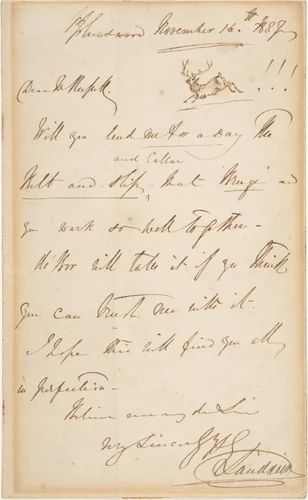 November 16th 1857
!!!
Dear Mr Russell
Will you lend me for a Day The
and Collar
Belt and Slip, that and
you work so well together -
will take it if you Think
you can trust me with it -
I hope this will find you all
in perfection -
Believe me my dear Sir
Very Sincerely Yrs
E Landseer